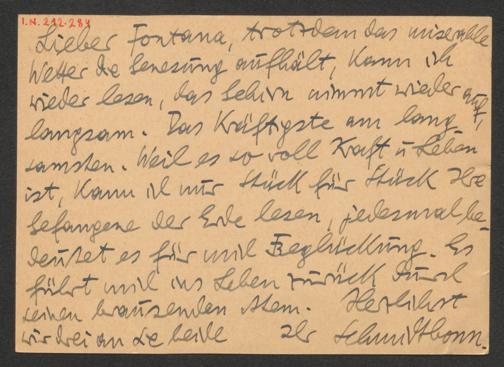 I.N. 212.284
Lieber Fontana, trotzdem das miserable
Wetter die Genesung aufhält, kann ich
wieder lesen, das Gehirn nimmt wieder auf,
langsam. Das Kräftigste am lang-
samsten. Weil es so voll Kraft u Leben
ist, kann ich nur Stück für Stück Ihre
Gefangene der Erde lesen, jedesmal be-
deutet es für mich Beglückung. Es
führt mich ins Leben zurück durch
seinen brausenden Atem. Herzlichst
wir drei an Sie beide Ihr Schmidtbonn.